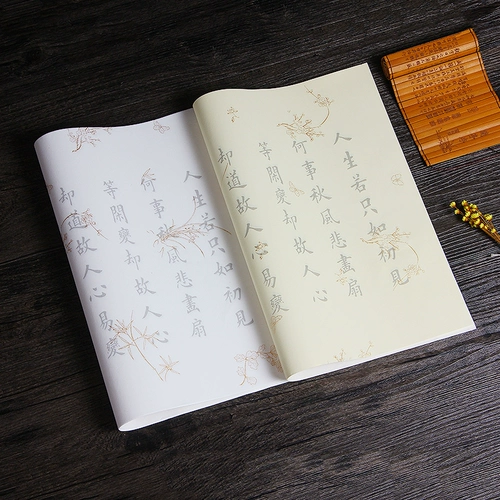 人生若只如初見
何事秋風悲畫扇
等閑變却故人心
却道故人心易變
人生若只如初見
何事秋風悲畫扇
等閑變却故人心
却道故人心易變